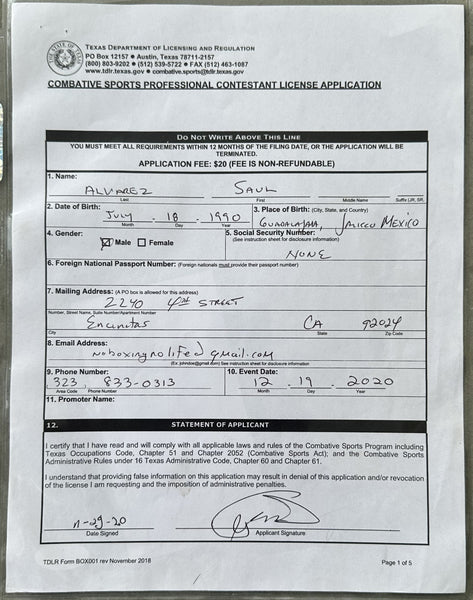 TEXAS DEPARTMENT OF LICENSING AND REGULATION
PO Box 12157 ● Austin, Texas 78711-2157
(800) 803-9202 ● (512) 539-5722 ● FAX (512) 463-1087
www.tdlr.texas.gov ● combative.sports@tdlr.texas.gov
COMBATIVE SPORTS PROFESSIONAL CONTESTANT LICENSE APPLICATION
DO NOT WRITE ABOVE THIS LINE
YOU MUST MEET ALL REQUIREMENTS WITHIN 12 MONTHS OF THE FILING DATE, OR THE APPLICATION WILL BE
TERMINATED.
APPLICATION FEE: $20 (FEE IS NON-REFUNDABLE)
1. Name:
ALVAREZ SAUL
Last First Middle Name Suffix (JR, SR,
2. Date of Birth: 3. Place of Birth: (City, State, and Country)
July . 18 . 1990 GUADALAJARA, MEXICO
Month Day Year
4. Gender: 5. Social Security Number:
Male Female (See instruction sheet for disclosure information)
NONE
6. Foreign National Passport Number: (Foreign nationals must provide their passport number)
7. Mailing Address: (A PO box is allowed for this address)
2240 4th STREET
Number, Street Name, Suite Number/Apartment Number
Encinitas CA 92024
City State Zip Code
8. Email Address:
noboxingnolife@gmail.com
(Ex: johndoe@gmail.com) See instruction sheet for disclosure information
9. Phone Number: 10. Event Date:
323 833-0313 12 . 19 . 2020
Area Code Phone Number Month Day Year
11. Promoter Name:
12. STATEMENT OF APPLICANT
I certify that I have read and will comply with all applicable laws and rules of the Combative Sports Program including
Texas Occupations Code, Chapter 51 and Chapter 2052 (Combative Sports Act); and the Combative Sports
Administrative Rules under 16 Texas Administrative Code, Chapter 60 and Chapter 61.
I understand that providing false information on this application may result in denial of this application and/or revocation
of the license I am requesting and the imposition of administrative penalties.
11-29-20
Date Signed Applicant Signature
TDLR Form BOX001 rev November 2018 Page 1 of 5